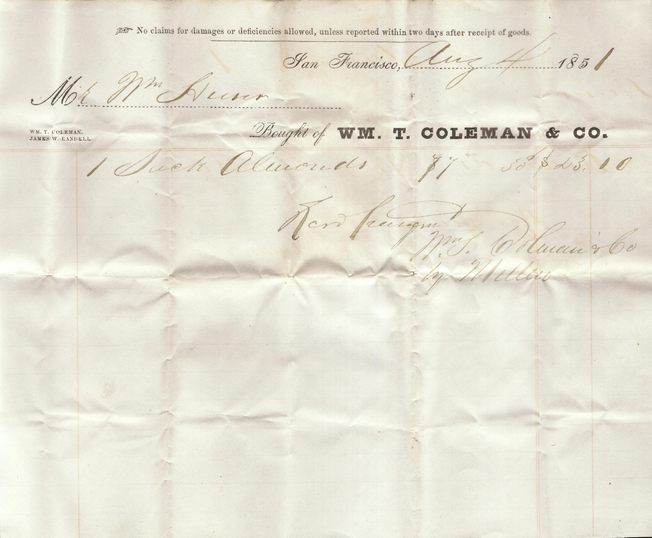 ☞ No claims for damages or deficiencies allowed, unless reported within two days after receipt of goods.
San Francisco, Aug 4 1851
Mr Wm
WM. T. COLEMAN.
JAMES W. RANDELL.
Bought of WM. T. COLEMAN & CO.
1 Sack Almonds 77 33¢ $25.10
Recd Payment
Wm T. Coleman & Co
by